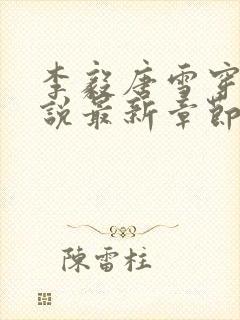 李毅唐雪穿
說最新章節
陳雷柱